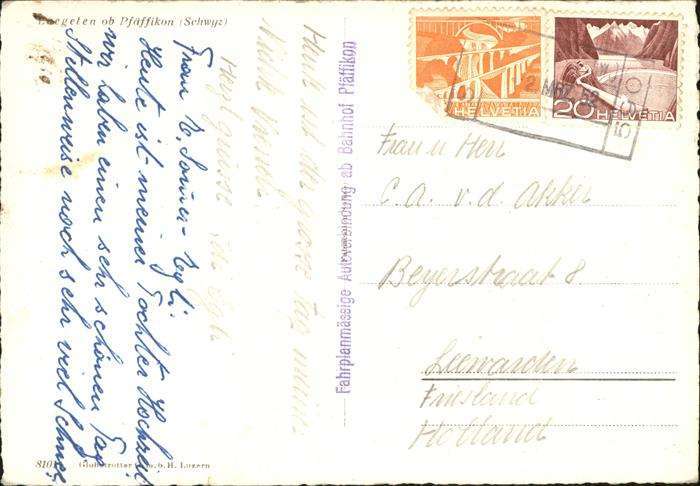 Luegeten ob Pfäffikon (Schwyz)
Heute ist der grosse Tag meiner
Nichte
Grüsse
Frau B. Sommer-Egli.
Heute ist meiner Tochter Hochzeit
wir haben einen sehr schönen Tag
Stellenweise noch sehr viel Schnee,
Fahrplanmässige Autoverbindung ab Bahnhof Pfäffikon
HELVETIA
20 HELVETIA
2. MRZ.
Frau u Herr
C. A. v. d. Akker
Beyerstraat 8
Leewarden
Friesland
Holland
Globetrotter b. H. Luzern